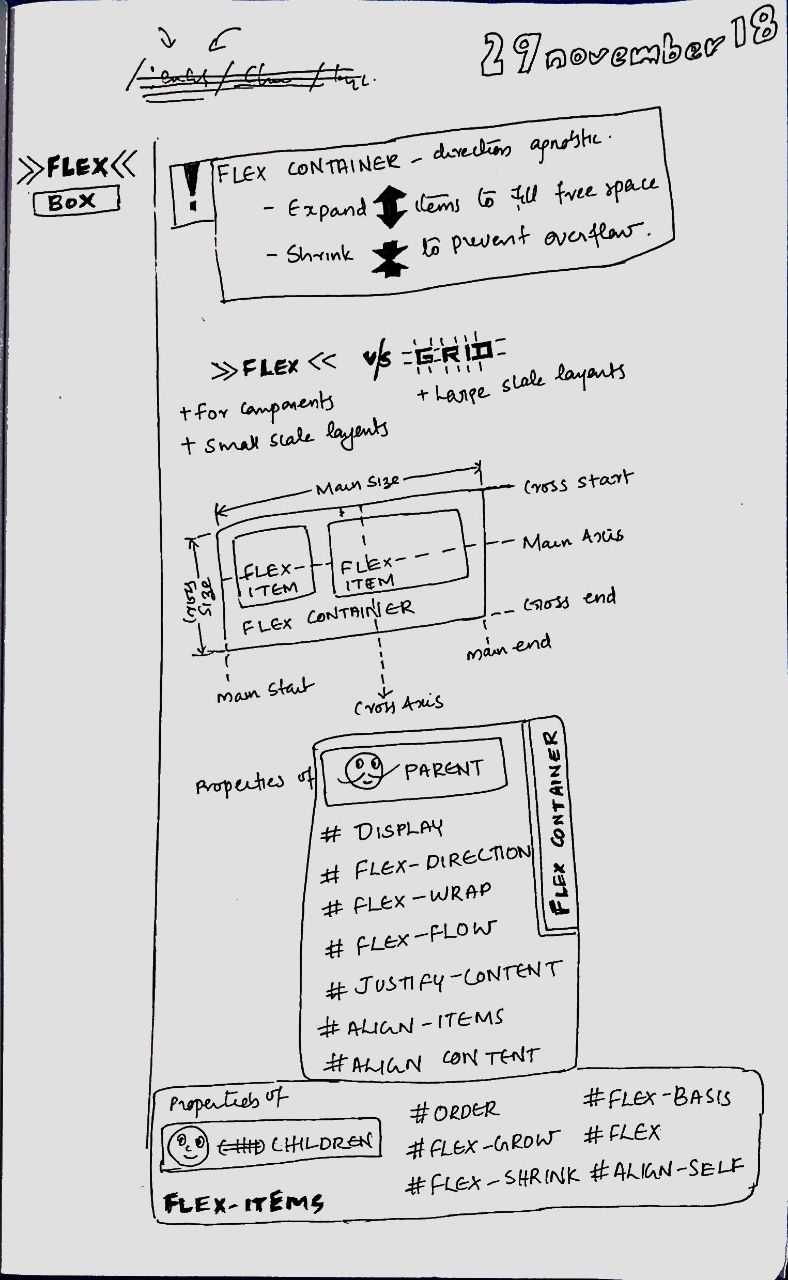 29 november 18
>>FLEX<<
BOX
! FLEX CONTAINER - direction agnostic.
- Expand items to fill free space
- Shrink to prevent overflow.
>>FLEX<< v/s GRID
+ for components
+ small scale layouts
+ Large scale layouts
Main Size
Cross Size
Cross start
Main Axis
Cross end
main end
FLEX-ITEM
FLEX-ITEM
FLEX CONTAINER
Main Start
Cross Axis
Properties of PARENT
FLEX CONTAINER
# DISPLAY
# FLEX-DIRECTION
# FLEX-WRAP
# FLEX-FLOW
# JUSTIFY-CONTENT
# ALIGN-ITEMS
# ALIGN CONTENT
Properties of
CHILDREN
FLEX-ITEMS
# ORDER
# FLEX-GROW
# FLEX-SHRINK
# FLEX-BASIS
# FLEX
# ALIGN-SELF